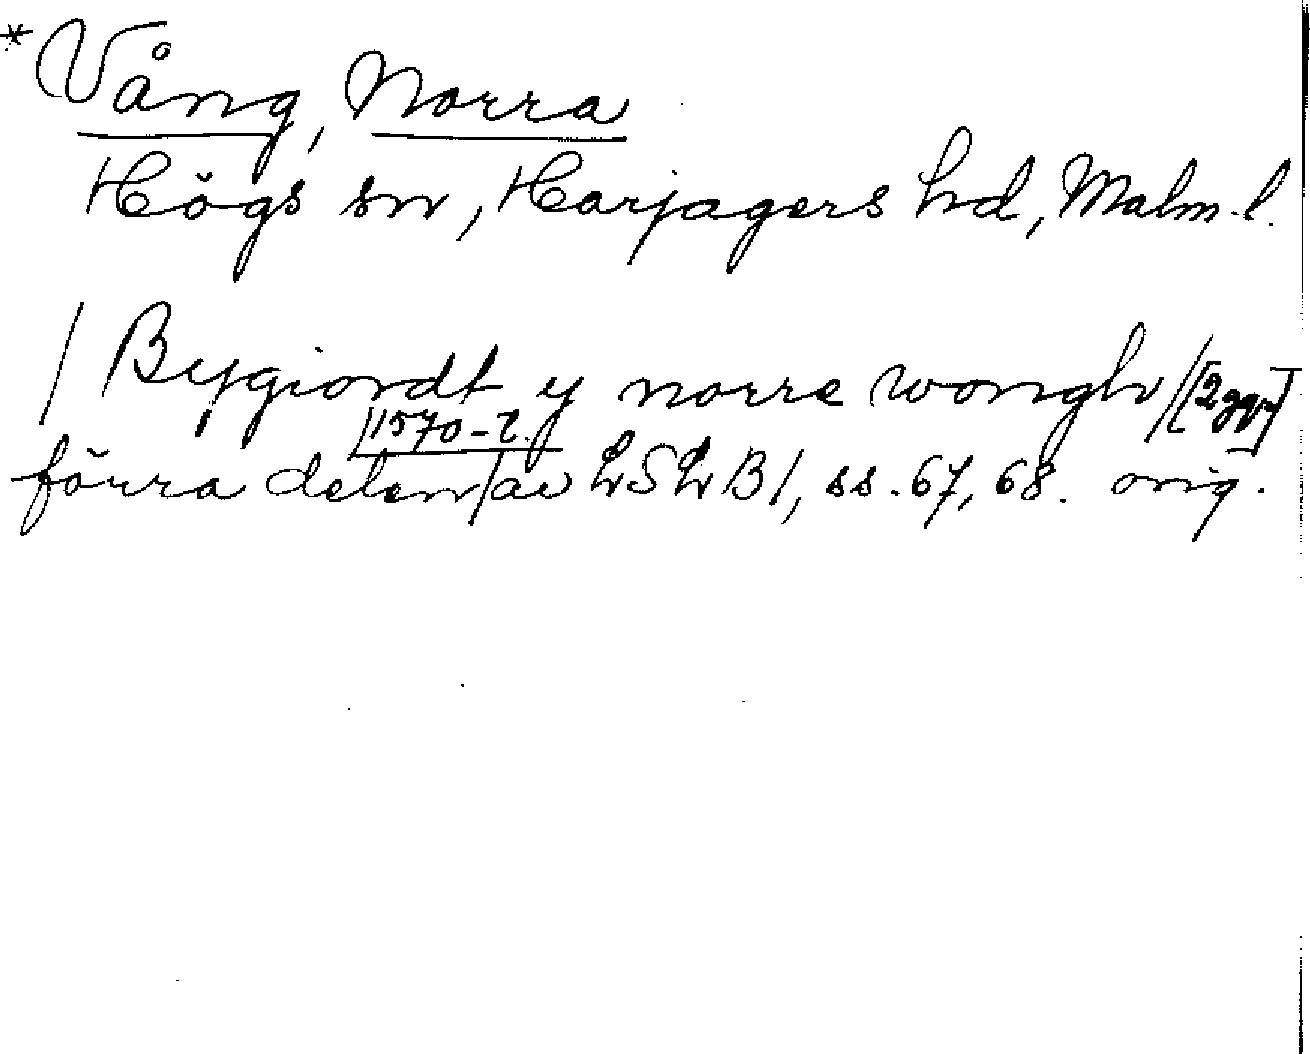 *Vång, Norra
Högs sn, Harjagers hd, Malm. l.
/ Bygiordt y norre wongh /[2ggr]
/1570-t.
förra delen/av LSLB/, ss. 67, 68. orig.